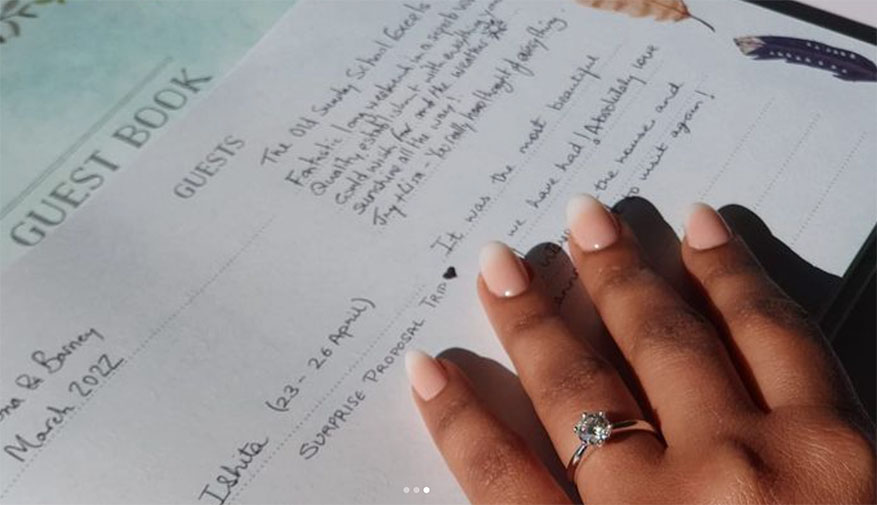 GUEST BOOK
GUESTS
The Old Sunday School Excels
Fantastic long weekend in a superb
Quality establishment with everything you
could wish for and the weather
sunshine all the way!
Jay + Lisa - You really have thought of everything
& Barney
March 2022
Ishita (23 - 26 April)
SURPRISE PROPOSAL TRIP ♥
It was the most beautiful
we have had! Absolutely love
the house and
to visit again!